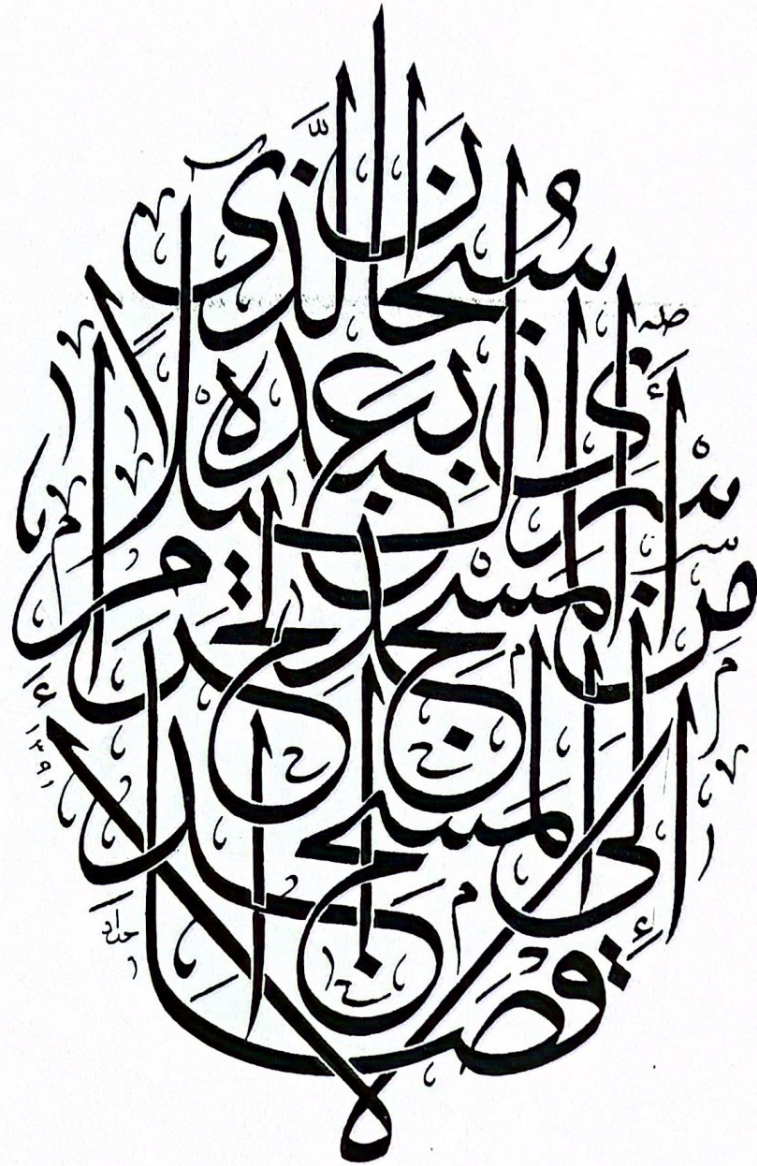 سُبْحَانَ الَّذِي
أَسْرَى بِعَبْدِهِ لَيْلًا
مِنَ الْمَسْجِدِ الْحَرَامِ
إِلَى الْمَسْجِدِ الْأَقْصَا
١٣٩١
حداد